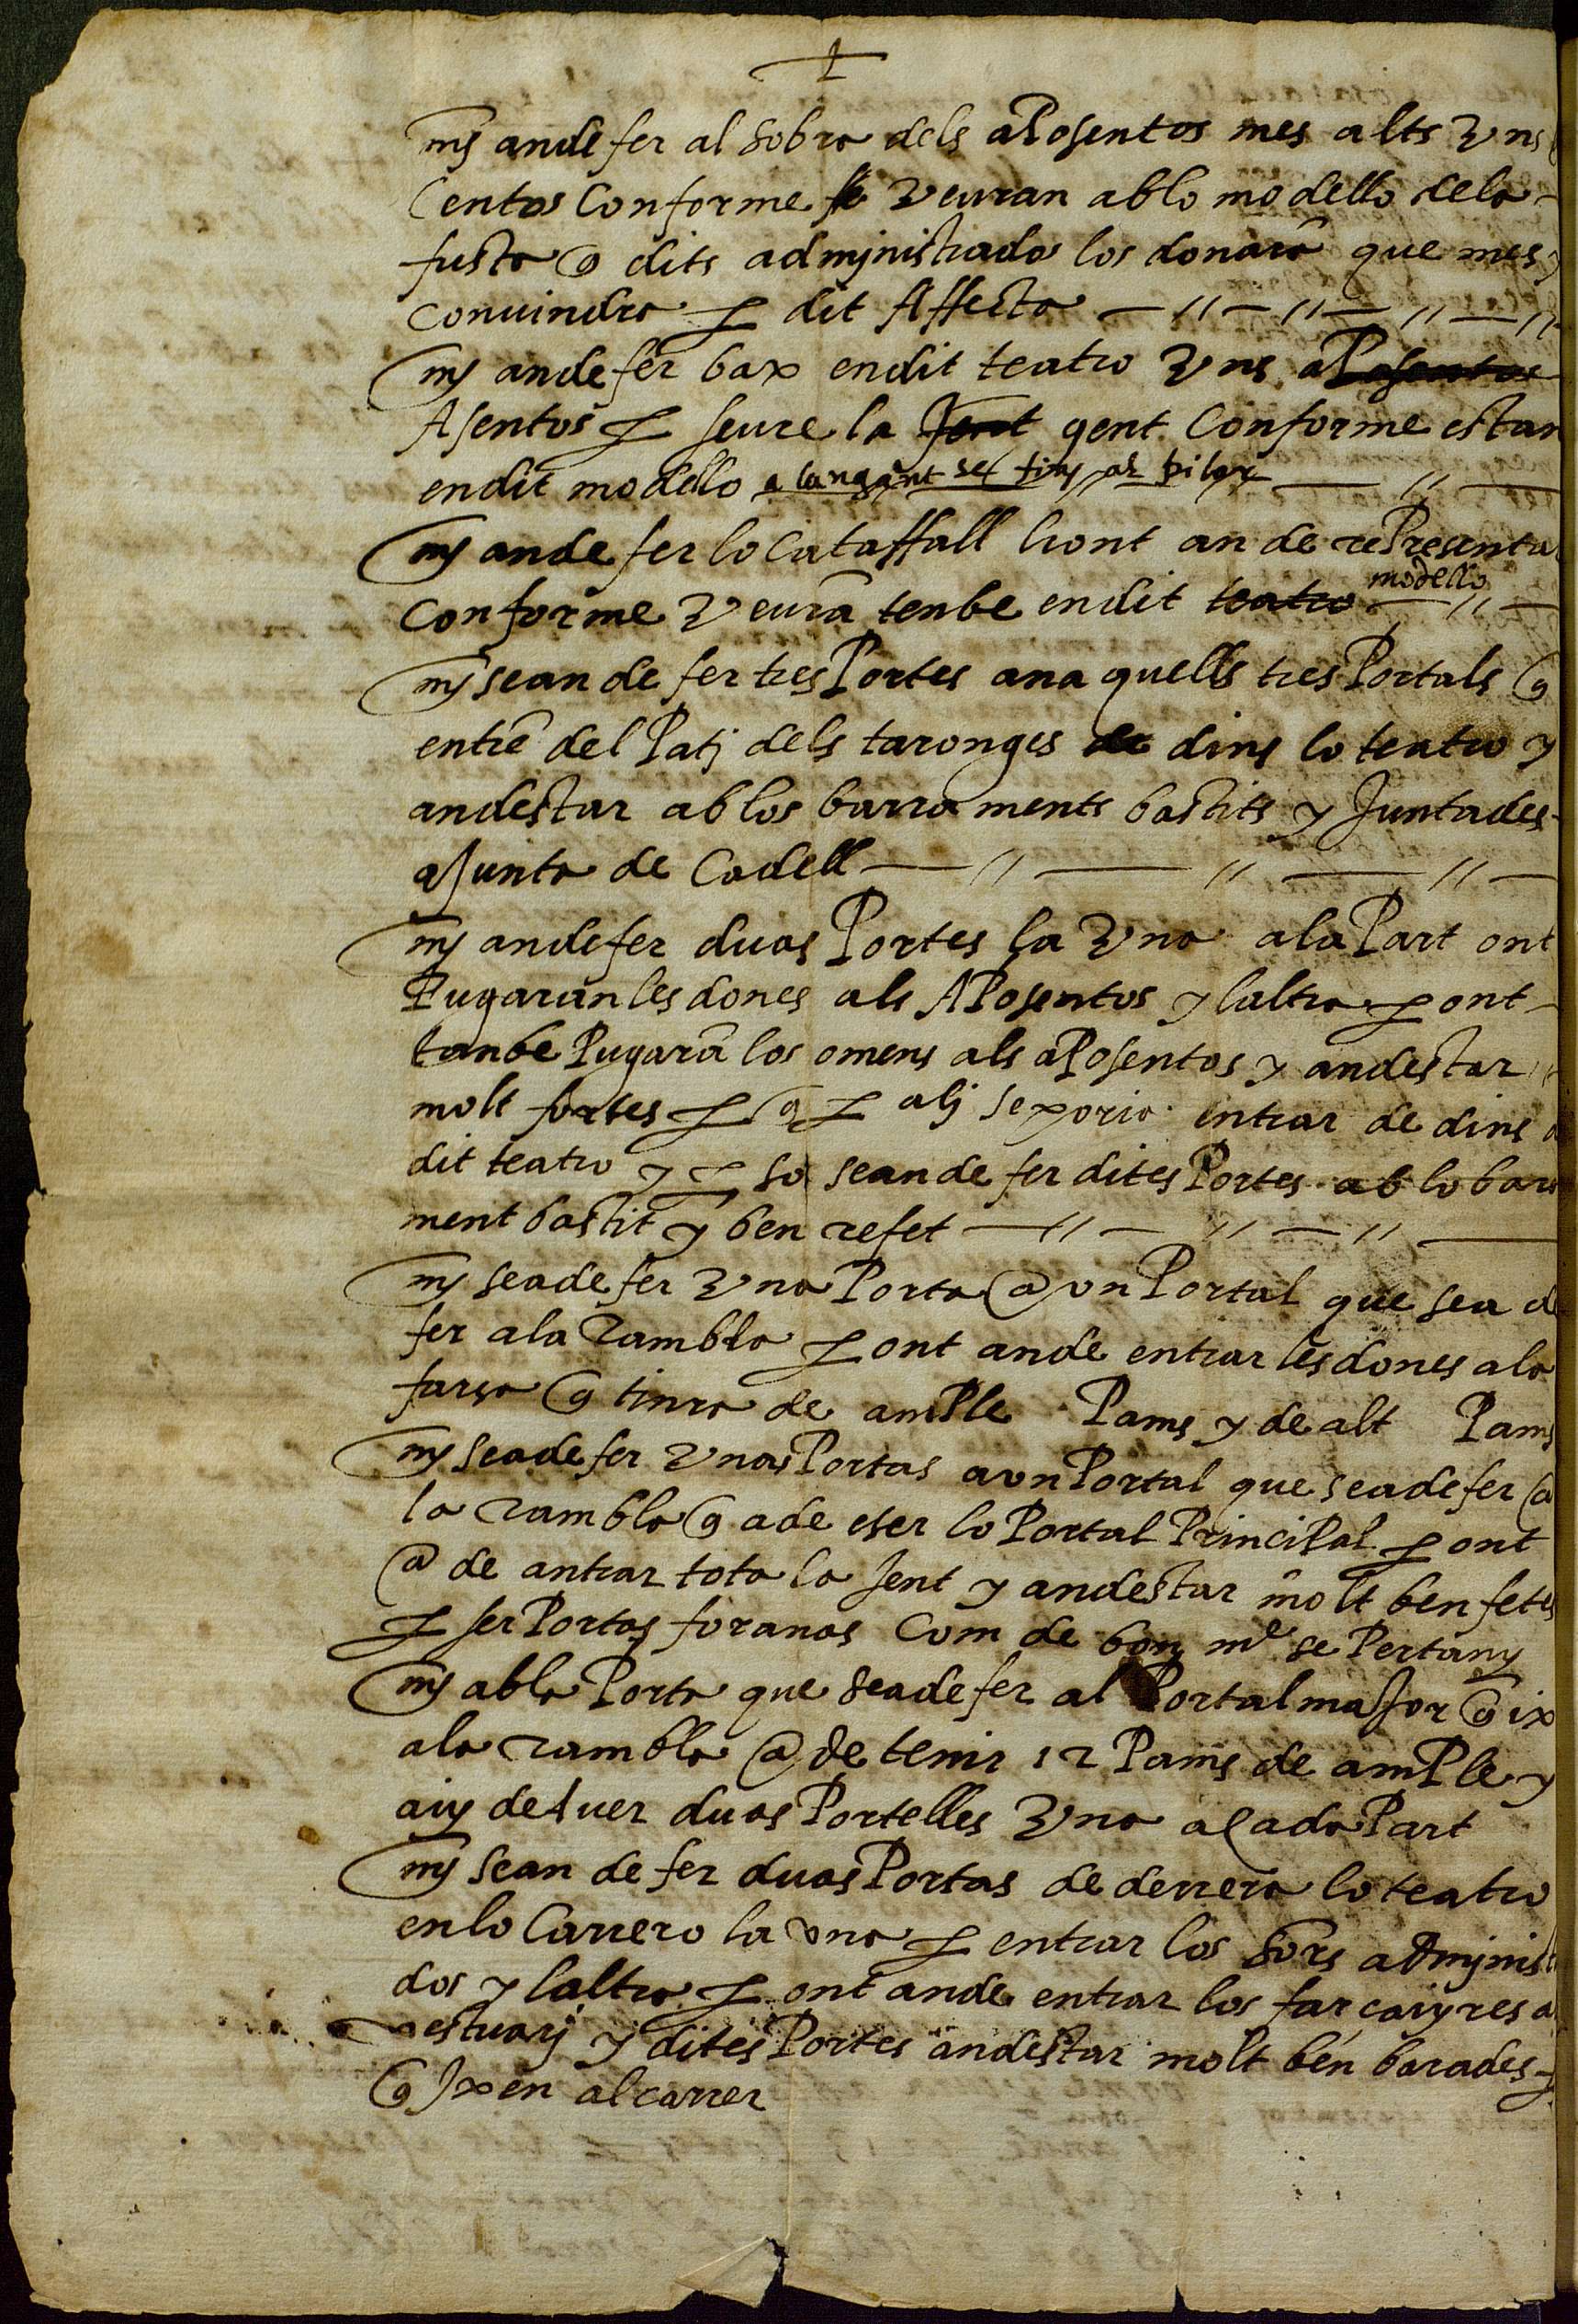 mj ande fer al sobra dels aPosentos mes alts uns
Centos Conforme se veuran ab lo modello de la
fusta q dits administrados los donarā que mes
convindra p dit Affecta
mj ande fer bax en dit teatro uns aPosentos
Asentos p seure la Jent gent Conforme estan
en dit modello alangant se fins als pilar
mj ande fer lo Cataffall hont an de rePresenta
conforme veurā tenbe en dit teatro modello
mj sean de fer tres Portes ana quells tres Portals q
entrē del Patj dels taronges de dins lo teatro y
andestar ab los barraments bastits y Juntades
aJunta de Cadell
mj ande fer duas Portes la una a la Part ont
Pugaran les dones als APosentos y laltra p ont
tanbe Pugarā los omens als aPosentos y andestar
molt fortes p q p alj se poria entrar de dins
dit teatro y p so sean de fer dites Portes ab lo bara
ment bastit y ben refet
mj sea de fer una Porta a un Portal que sea de
fer a la Rambla p ont ande entrar les dones a la
farsa q tinra de amPle Pams y de alt Pams
mj sea de fer unas Portas a un Portal que sea de fer a
la rambla q a de eser lo Portal PrinciPal p ont
a de antrar tota la Jent y andestar molt ben fetes
p ser Portas foranas Com de bon me se Pertany
mj ab la Porta que sea de fer al Portal maJor q ix
a la rambla a de tenir 12 Pams de amPle y
aiy de aver duas Portelles una a Cada Part
mj sean de fer duas Portas de derrera lo teatro
en lo Carrero la una p entrar los Sors adminis
dos y laltra p ont ande entrar los farcayres a
vestuarj y dites Portes andestar molt ben barades p
q Jxen al carrer